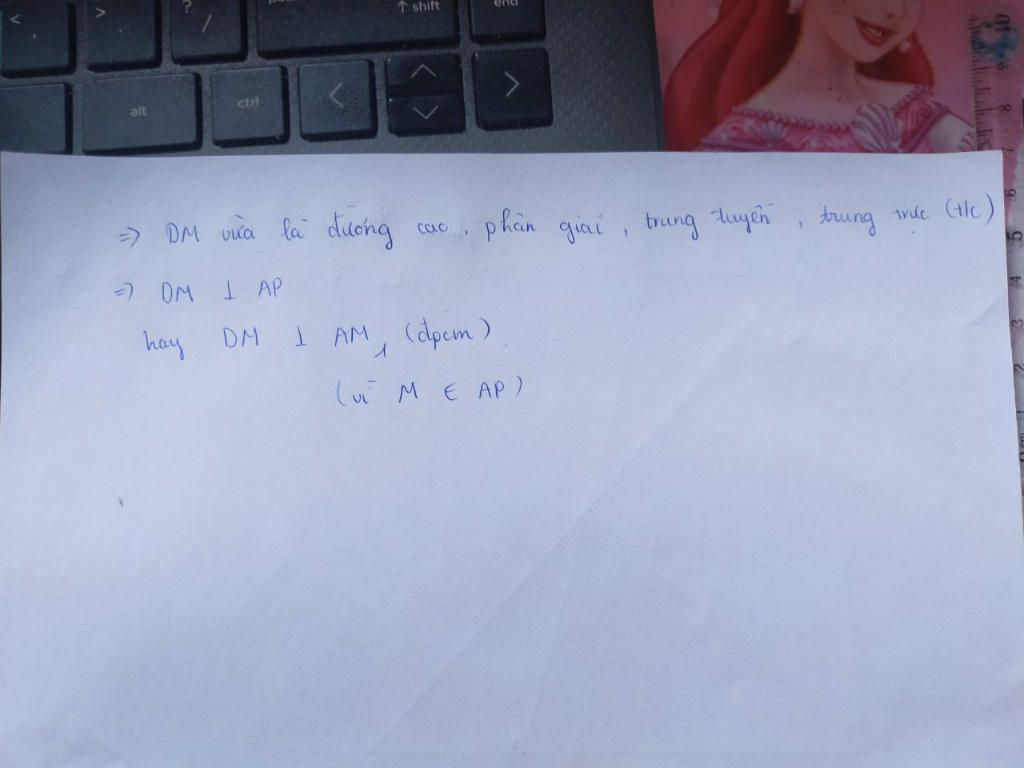 <
,
>
.
?
/
↑ shift
end
alt
ctrl
<
>
10
9
8
7
6
5
4
3
2
1
=> DM vừa là đường cao, phân giác, trung tuyến, trung trực (t/c)
=> DM ⊥ AP
hay DM ⊥ AM, (đpcm)
(vì M ∈ AP)